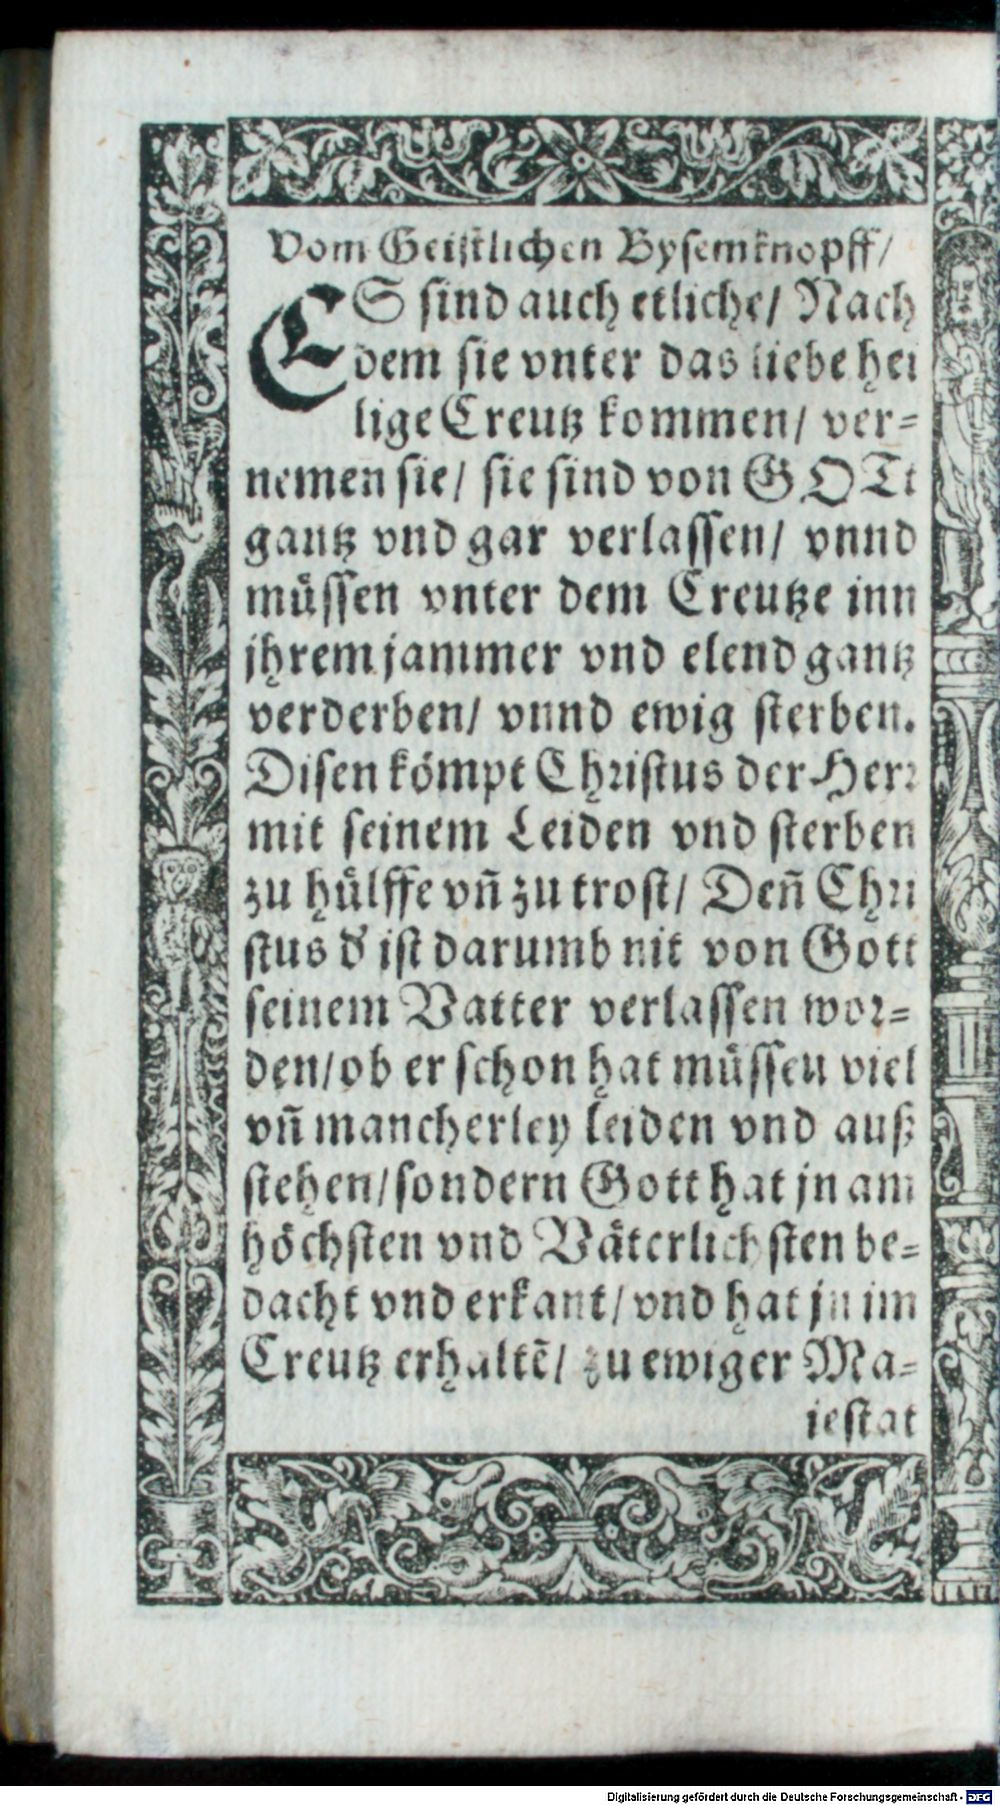 Vom Geistlichen Bysemknopff/
ES sind auch etliche/ Nach
dem sie vnter das liebe hei
lige Creutz kommen/ ver-
nemen sie/ sie sind von GOTt
gantz vnd gar verlassen/ vnnd
müssen vnter dem Creutze inn
jhrem jammer vnd elend gantz
verderben/ vnnd ewig sterben.
Disen kömpt Christus der Herr
mit seinem Leiden vnd sterben
zu hülffe vñ zu trost/ Deñ Chri
stus d' ist darumb nit von Gott
seinem Vatter verlassen wor-
den/ ob er schon hat müssen viel
vñ mancherley leiden vnd auß
stehen/ sondern Gott hat jn am
höchsten vnd Väterlichsten be-
dacht vnd erkant/ vnd hat jn im
Creutz erhaltẽ/ zu ewiger Ma-
iestat
Digitalisierung gefördert durch die Deutsche Forschungsgemeinschaft - DFG